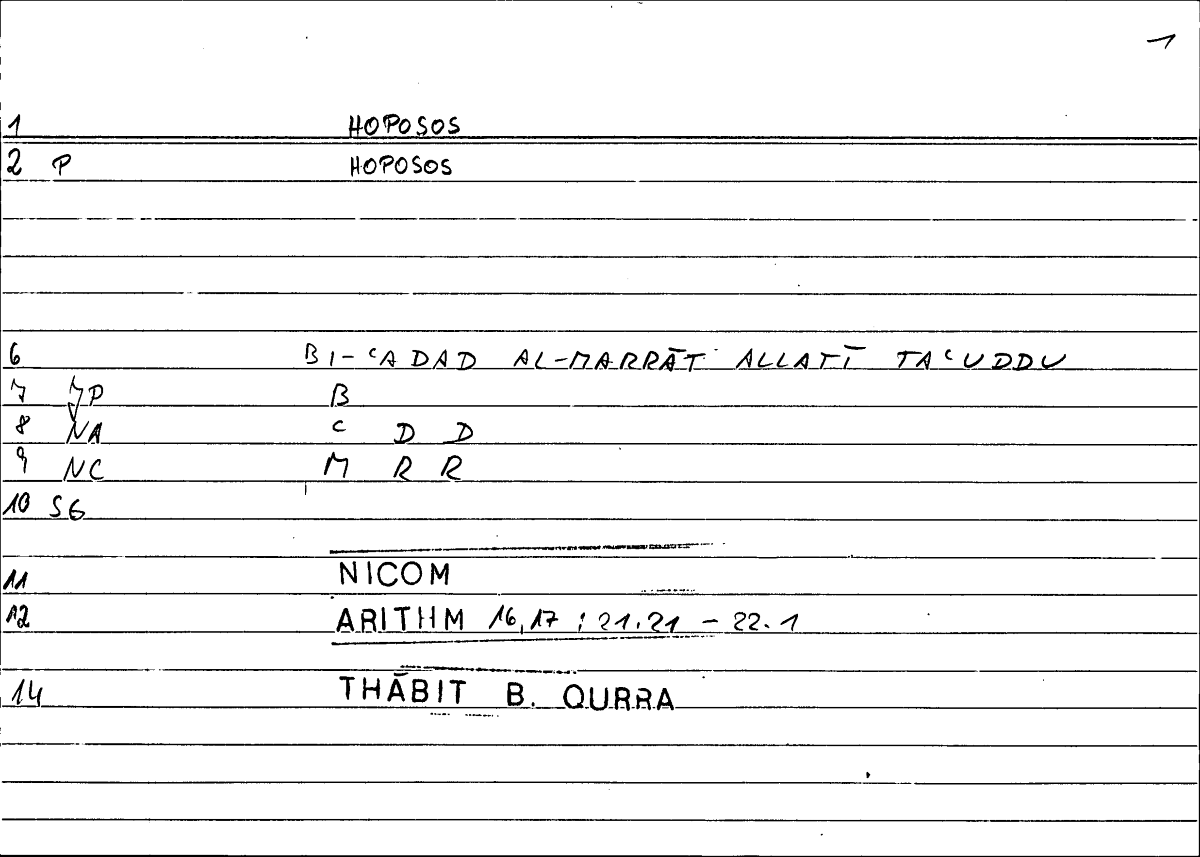 1
1 HOPOSOS
2 P HOPOSOS
6 BI-ʿADAD AL-MARRĀT ALLATĪ TAʿUDDU
7 JP B
8 NA ʿ D D
9 NC M R R
10 SG
11 NICOM
12 ARITHM 16,17 ; 21.21 - 22.1
14 THĀBIT B. QURRA